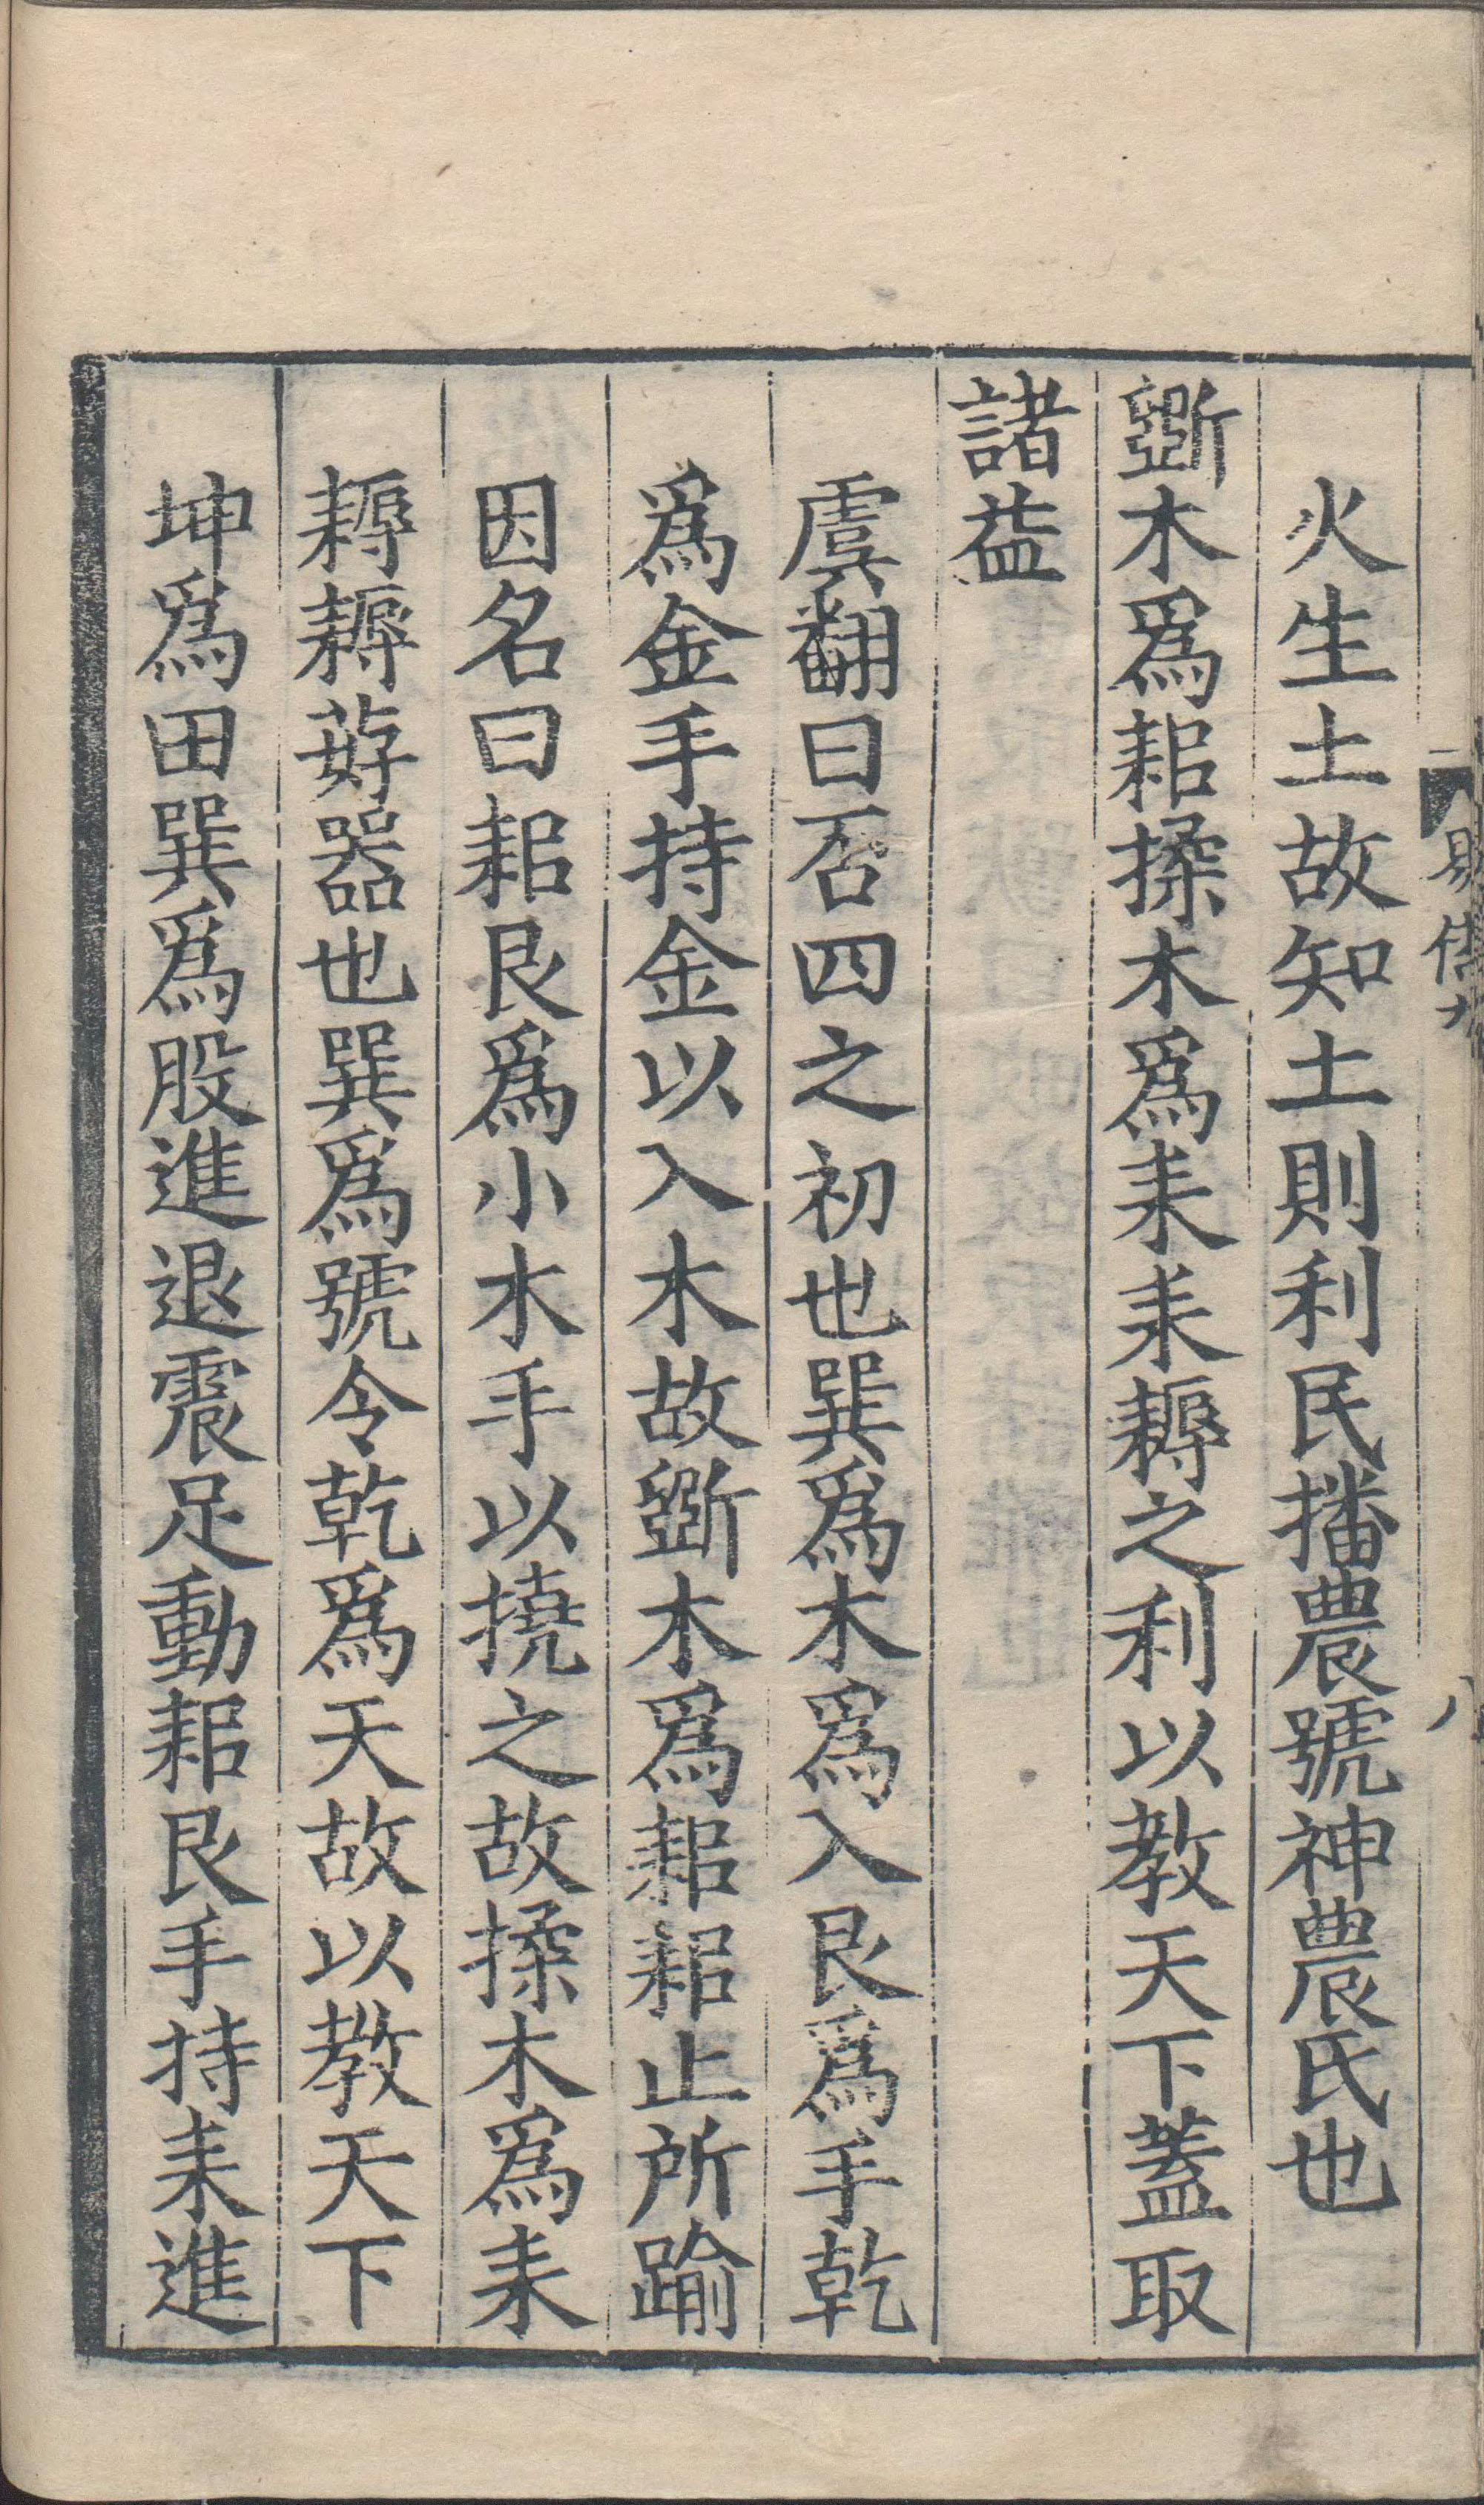 火生土故知土則利民播農號神農氏也
斵木爲耜揉木爲耒耒耨之利以教天下蓋取
諸益
虞翻曰否四之初也巽爲木爲入艮爲手乾
爲金手持金以入木故斵木爲耜耜止所踰
因名曰耜艮爲小木手以撓之故揉木爲耒
耨耨茠器也巽爲號令乾爲天故以教天下
坤爲田巽爲股進退震足動耜艮手持耒進